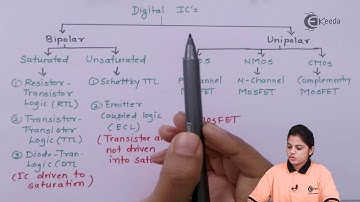 Digital IC's
Ekeeda
Bipolar
Unipolar
Saturated
Unsaturated
NMOS
CMOS
① Resistor-
Transistor
Logic (RTL)
② Transistor-
Transistor
Logic (TTL)
③ Diode-Tran.
Logic (DTL
(IC driven to
saturation)
① Schottky TTL
② Emitter
Coupled logic
(ECL)
(Transistor a
not driven
into satu
N-Channel
MOSFET
Complementry
MOSFET
MOSFET